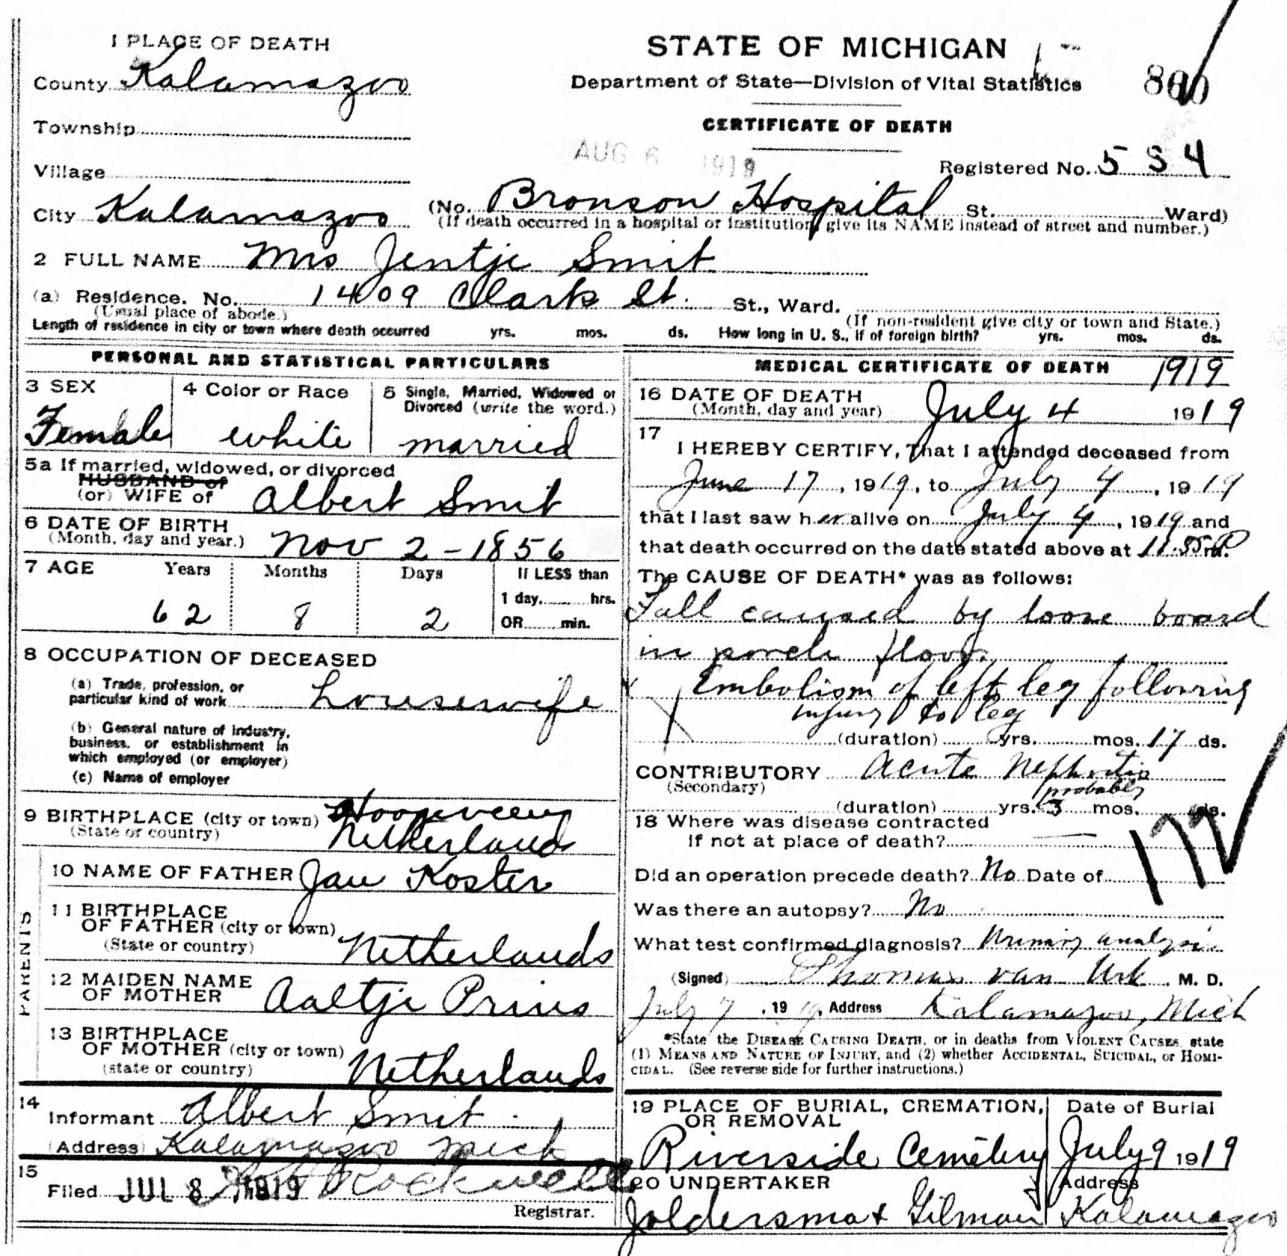 STATE OF MICHIGAN
Department of State—Division of Vital Statistics
CERTIFICATE OF DEATH
AUG 6 1919
Registered No. 554
1 PLACE OF DEATH
County Kalamazoo
Township
Village
City Kalamazoo (No. Bronson Hospital St. Ward)
(If death occurred in a hospital or institution, give its NAME instead of street and number.)
2 FULL NAME Mrs Jentje Smit
(a) Residence. No. 1409 Clark St. St., Ward.
(Usual place of abode.) (If non-resident give city or town and State.)
Length of residence in city or town where death occurred yrs. mos. ds. How long in U. S., if of foreign birth? yrs. mos. ds.
PERSONAL AND STATISTICAL PARTICULARS
3 SEX
Female
4 Color or Race
white
5 Single, Married, Widowed or
Divorced (write the word.)
married
5a If married, widowed, or divorced
HUSBAND of
(or) WIFE of Albert Smit
6 DATE OF BIRTH
(Month, day and year.) Nov 2-1856
7 AGE Years Months Days If LESS than
1 day, hrs.
62 8 2 OR min.
8 OCCUPATION OF DECEASED
(a) Trade, profession, or
particular kind of work housewife
(b) General nature of industry,
business, or establishment in
which employed (or employer)
(c) Name of employer
9 BIRTHPLACE (city or town) Hoogeveen
(State or country) Netherlands
PARENTS
10 NAME OF FATHER Jan Koster
11 BIRTHPLACE
OF FATHER (city or town)
(State or country) Netherlands
12 MAIDEN NAME
OF MOTHER Aaltje Prins
13 BIRTHPLACE
OF MOTHER (city or town)
(state or country) Netherlands
14
Informant Albert Smit
(Address) Kalamazoo Mich
15
Filed JUL 8 1919 Rockwell
Registrar.
MEDICAL CERTIFICATE OF DEATH 1919
16 DATE OF DEATH
(Month, day and year) July 4 1919
17
I HEREBY CERTIFY, That I attended deceased from
June 17, 1919, to July 4, 1919
that I last saw her alive on July 4, 1919 and
that death occurred on the date stated above at 11.55 P m.
The CAUSE OF DEATH* was as follows:
Fall caused by loose board
in porch floor.
Embolism of left leg following
injury to leg
(duration) yrs. mos. 17 ds.
CONTRIBUTORY Acute Nephritis
(Secondary) probably
(duration) yrs. 3 mos. ds.
18 Where was disease contracted
if not at place of death?
172
Did an operation precede death? No Date of
Was there an autopsy? No
What test confirmed diagnosis? Urinary analysis
(Signed) Thomas van Urk M. D.
July 7, 1919 Address Kalamazoo, Mich
*State the DISEASE CAUSING DEATH, or in deaths from VIOLENT CAUSES, state
(1) MEANS AND NATURE OF INJURY, and (2) whether ACCIDENTAL, SUICIDAL, or HOMI-
CIDAL. (See reverse side for further instructions.)
19 PLACE OF BURIAL, CREMATION,
OR REMOVAL
Riverside Cemetery
Date of Burial
July 9 1919
20 UNDERTAKER
Joldersma & Gilman
Address
Kalamazoo